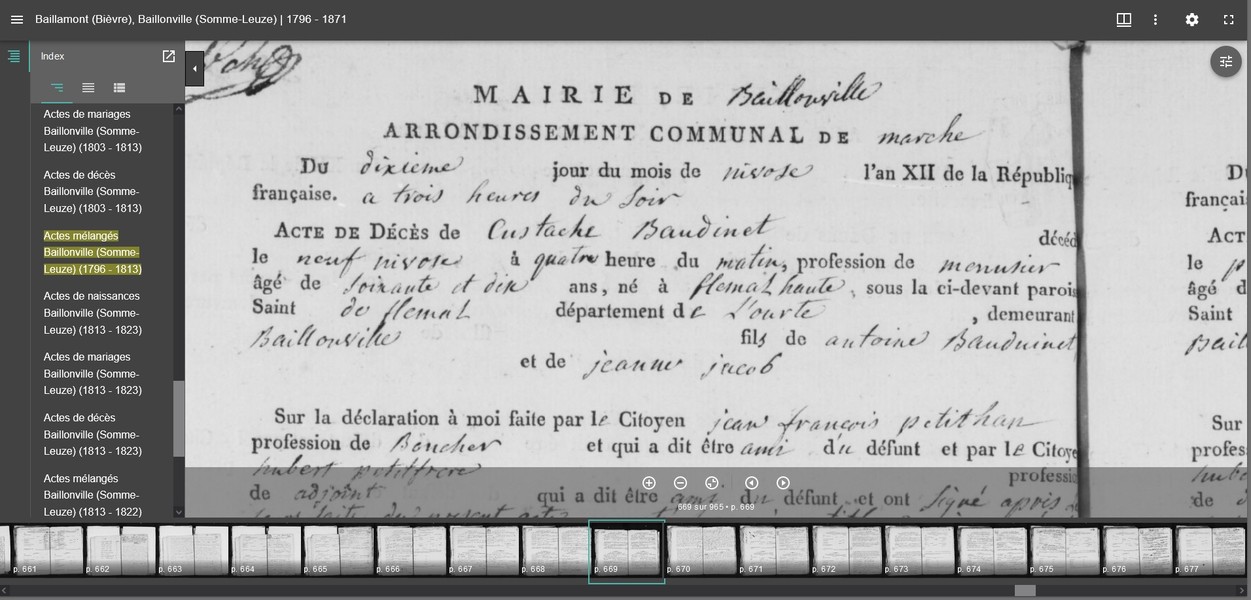 Baillamont (Bièvre), Baillonville (Somme-Leuze) | 1796 - 1871
Index
Actes de mariages
Baillonville (Somme-
Leuze) (1803 - 1813)
Actes de décès
Baillonville (Somme-
Leuze) (1803 - 1813)
Actes mélangés
Baillonville (Somme-
Leuze) (1796 - 1813)
Actes de naissances
Baillonville (Somme-
Leuze) (1813 - 1823)
Actes de mariages
Baillonville (Somme-
Leuze) (1813 - 1823)
Actes de décès
Baillonville (Somme-
Leuze) (1813 - 1823)
Actes mélangés
Baillonville (Somme-
Leuze) (1813 - 1822)
MAIRIE DE Baillonville
ARRONDISSEMENT COMMUNAL DE marche
Du dixieme jour du mois de nivose l'an XII de la Républiq
française. a trois heures du Soir
ACTE DE DÉCÈS de Eustache Baudinet décéd
le neuf nivose à quatre heure du matin, profession de menusier
âgé de Soixante et dix ans, né à flemal haute, sous la ci-devant parois
Saint de flemal département de L'ourte, demeurant
Baillonville fils de antoine Bauduinet
et de jeanne jacob
Sur la déclaration à moi faite par le Citoyen jean françois petithan
profession de Boucher et qui a dit être ami du défunt et par le Citoye
hubert petitfrere professi
de adjoint qui a dit être ami du défunt et ont Signé après
Du
françai
ACT
le
âgé d
Saint
Bail
Sur
profes
hube
de
669 sur 965 • p. 669
p. 661
p. 662
p. 663
p. 664
p. 665
p. 666
p. 667
p. 668
p. 669
p. 670
p. 671
p. 672
p. 673
p. 674
p. 675
p. 676
p. 677